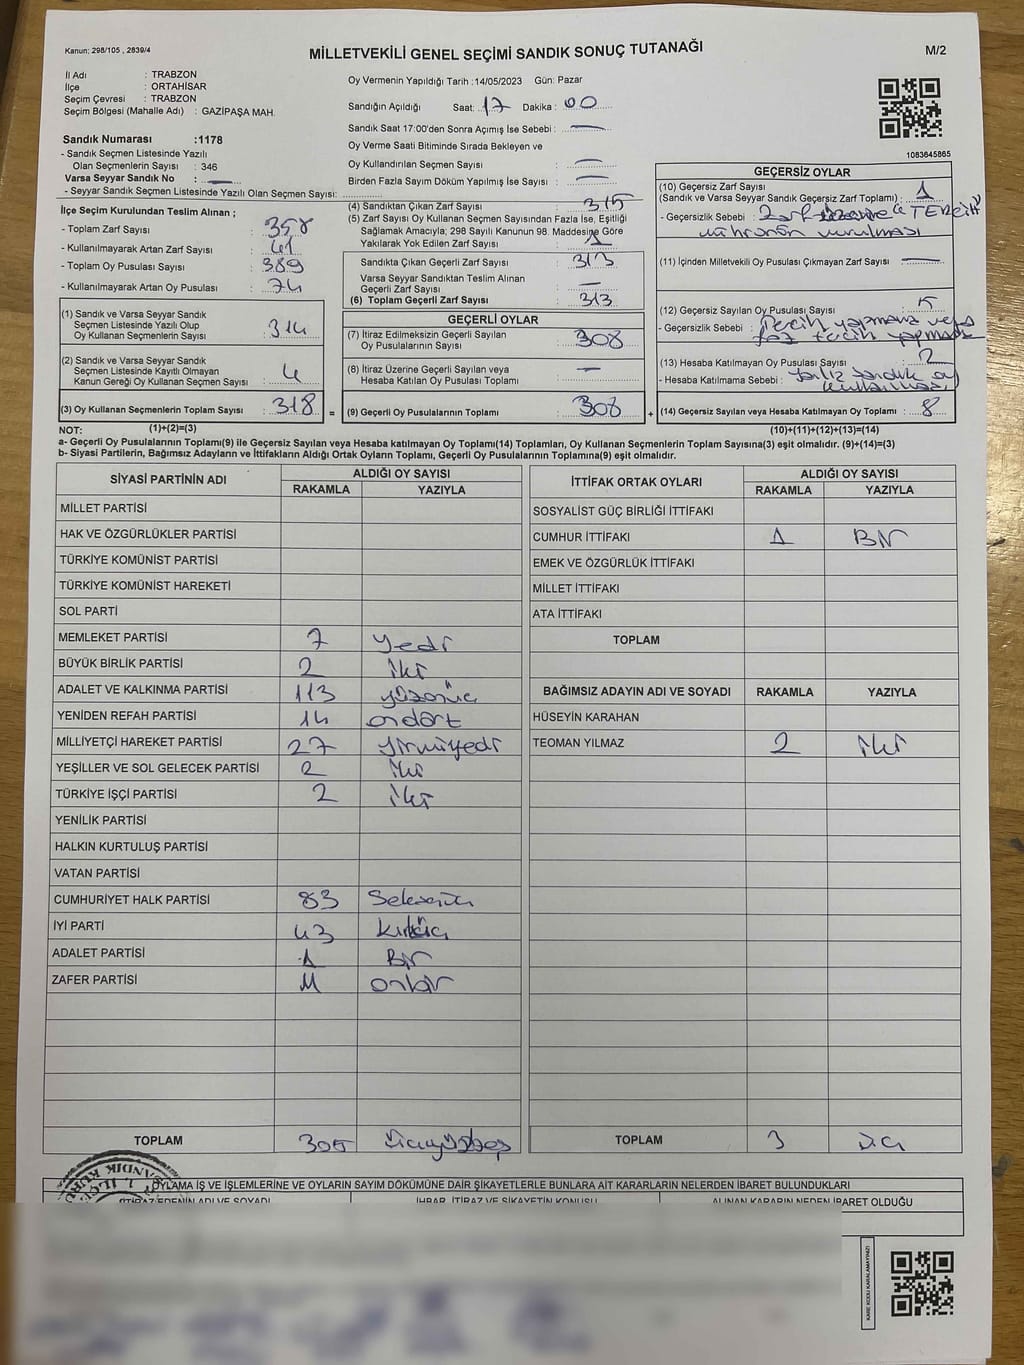 Kanun: 298/105 , 2839/4
MİLLETVEKİLİ GENEL SEÇİMİ SANDIK SONUÇ TUTANAĞI
M/2
İl Adı : TRABZON
İlçe : ORTAHİSAR
Seçim Çevresi : TRABZON
Seçim Bölgesi (Mahalle Adı) : GAZİPAŞA MAH.
Oy Vermenin Yapıldığı Tarih :14/05/2023 Gün: Pazar
Sandığın Açıldığı Saat: 17 Dakika : 00
Sandık Saat 17:00'den Sonra Açımış İse Sebebi : —
Oy Verme Saati Bitiminde Sırada Bekleyen ve
Oy Kullandırılan Seçmen Sayısı : —
Birden Fazla Sayım Döküm Yapılmış İse Sayısı : —
Sandık Numarası :1178
- Sandık Seçmen Listesinde Yazılı
Olan Seçmenlerin Sayısı : 346
Varsa Seyyar Sandık No : —
- Seyyar Sandık Seçmen Listesinde Yazılı Olan Seçmen Sayısı:
İlçe Seçim Kurulundan Teslim Alınan ;
- Toplam Zarf Sayısı : 358
- Kullanılmayarak Artan Zarf Sayısı : 41
- Toplam Oy Pusulası Sayısı : 389
- Kullanılmayarak Artan Oy Pusulası : 74
(1) Sandık ve Varsa Seyyar Sandık
Seçmen Listesinde Yazılı Olup
Oy Kullanan Seçmenlerin Sayısı : 314
(2) Sandık ve Varsa Seyyar Sandık
Seçmen Listesinde Kayıtlı Olmayan
Kanun Gereği Oy Kullanan Seçmen Sayısı : 4
(3) Oy Kullanan Seçmenlerin Toplam Sayısı : 318 =
(4) Sandıktan Çıkan Zarf Sayısı : 315
(5) Zarf Sayısı Oy Kullanan Seçmen Sayısından Fazla İse, Eşitliği
Sağlamak Amacıyla; 298 Sayılı Kanunun 98. Maddesine Göre
Yakılarak Yok Edilen Zarf Sayısı : 1
Sandıkta Çıkan Geçerli Zarf Sayısı : 313
Varsa Seyyar Sandıktan Teslim Alınan
Geçerli Zarf Sayısı : —
(6) Toplam Geçerli Zarf Sayısı : 313
GEÇERLİ OYLAR
(7) İtiraz Edilmeksizin Geçerli Sayılan
Oy Pusulalarının Sayısı : 308
(8) İtiraz Üzerine Geçerli Sayılan veya
Hesaba Katılan Oy Pusulası Toplamı : —
(9) Geçerli Oy Pusulalarının Toplamı : 308 +
1083645865
GEÇERSİZ OYLAR
(10) Geçersiz Zarf Sayısı : 1
(Sandık ve Varsa Seyyar Sandık Geçersiz Zarf Toplamı)
- Geçersizlik Sebebi : Zarf üzerine "TERCİH"
mührünün vurulması
(11) İçinden Milletvekili Oy Pusulası Çıkmayan Zarf Sayısı : —
(12) Geçersiz Sayılan Oy Pusulası Sayısı : 5
- Geçersizlik Sebebi : Tercih yapmama veya
faz tercih yapmada
(13) Hesaba Katılmayan Oy Pusulası Sayısı : 2
- Hesaba Katılmama Sebebi : sandık oy
kullanması
(14) Geçersiz Sayılan veya Hesaba Katılmayan Oy Toplamı : 8
NOT: (1)+(2)=(3) (10)+(11)+(12)+(13)=(14)
a- Geçerli Oy Pusulalarının Toplamı(9) ile Geçersiz Sayılan veya Hesaba katılmayan Oy Toplamı(14) Toplamları, Oy Kullanan Seçmenlerin Toplam Sayısına(3) eşit olmalıdır. (9)+(14)=(3)
b- Siyasi Partilerin, Bağımsız Adayların ve İttifakların Aldığı Ortak Oyların Toplamı, Geçerli Oy Pusulalarının Toplamına(9) eşit olmalıdır.
SİYASİ PARTİNİN ADI ALDIĞI OY SAYISI
RAKAMLA YAZIYLA
MİLLET PARTİSİ
HAK VE ÖZGÜRLÜKLER PARTİSİ
TÜRKİYE KOMÜNİST PARTİSİ
TÜRKİYE KOMÜNİST HAREKETİ
SOL PARTİ
MEMLEKET PARTİSİ 7 yedi
BÜYÜK BİRLİK PARTİSİ 2 iki
ADALET VE KALKINMA PARTİSİ 113 yüzonüç
YENİDEN REFAH PARTİSİ 14 ondört
MİLLİYETÇİ HAREKET PARTİSİ 27 yirmiyedi
YEŞİLLER VE SOL GELECEK PARTİSİ 2 iki
TÜRKİYE İŞÇİ PARTİSİ 2 iki
YENİLİK PARTİSİ
HALKIN KURTULUŞ PARTİSİ
VATAN PARTİSİ
CUMHURİYET HALK PARTİSİ 83 Seksenüç
İYİ PARTİ 43 Kırküç
ADALET PARTİSİ 1 Bir
ZAFER PARTİSİ 11 onbir
TOPLAM 305 üçyüzbeş
İTTİFAK ORTAK OYLARI ALDIĞI OY SAYISI
RAKAMLA YAZIYLA
SOSYALİST GÜÇ BİRLİĞİ İTTİFAKI
CUMHUR İTTİFAKI 1 Bir
EMEK VE ÖZGÜRLÜK İTTİFAKI
MİLLET İTTİFAKI
ATA İTTİFAKI
TOPLAM
BAĞIMSIZ ADAYIN ADI VE SOYADI RAKAMLA YAZIYLA
HÜSEYİN KARAHAN
TEOMAN YILMAZ 2 iki
TOPLAM 3 üç
OYLAMA İŞ VE İŞLEMLERİNE VE OYLARIN SAYIM DÖKÜMÜNE DAİR ŞİKAYETLERLE BUNLARA AİT KARARLARIN NELERDEN İBARET BULUNDUKLARI
İTİRAZ EDENİN ADI VE SOYADI İHBAR, İTİRAZ VE ŞİKAYETİN KONUSU ALINAN KARARIN NEDEN İBARET OLDUĞU
KARE KODU KARALAMAYINIZ!